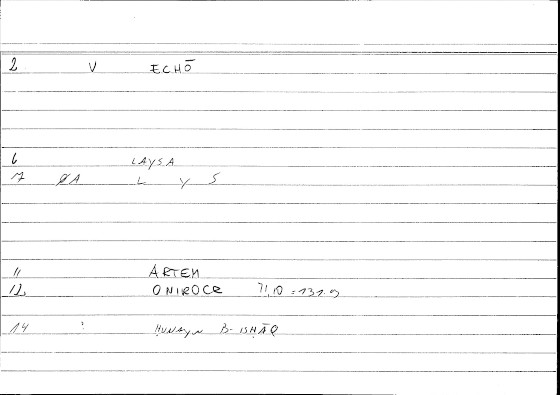 2 V ECHŌ
6 LAYSA
7 ØA L Y S
11 ARTEM
12 ONIROCR 71,10 = 131.9
14 : ḤUNAYN B- ISḤĀQ